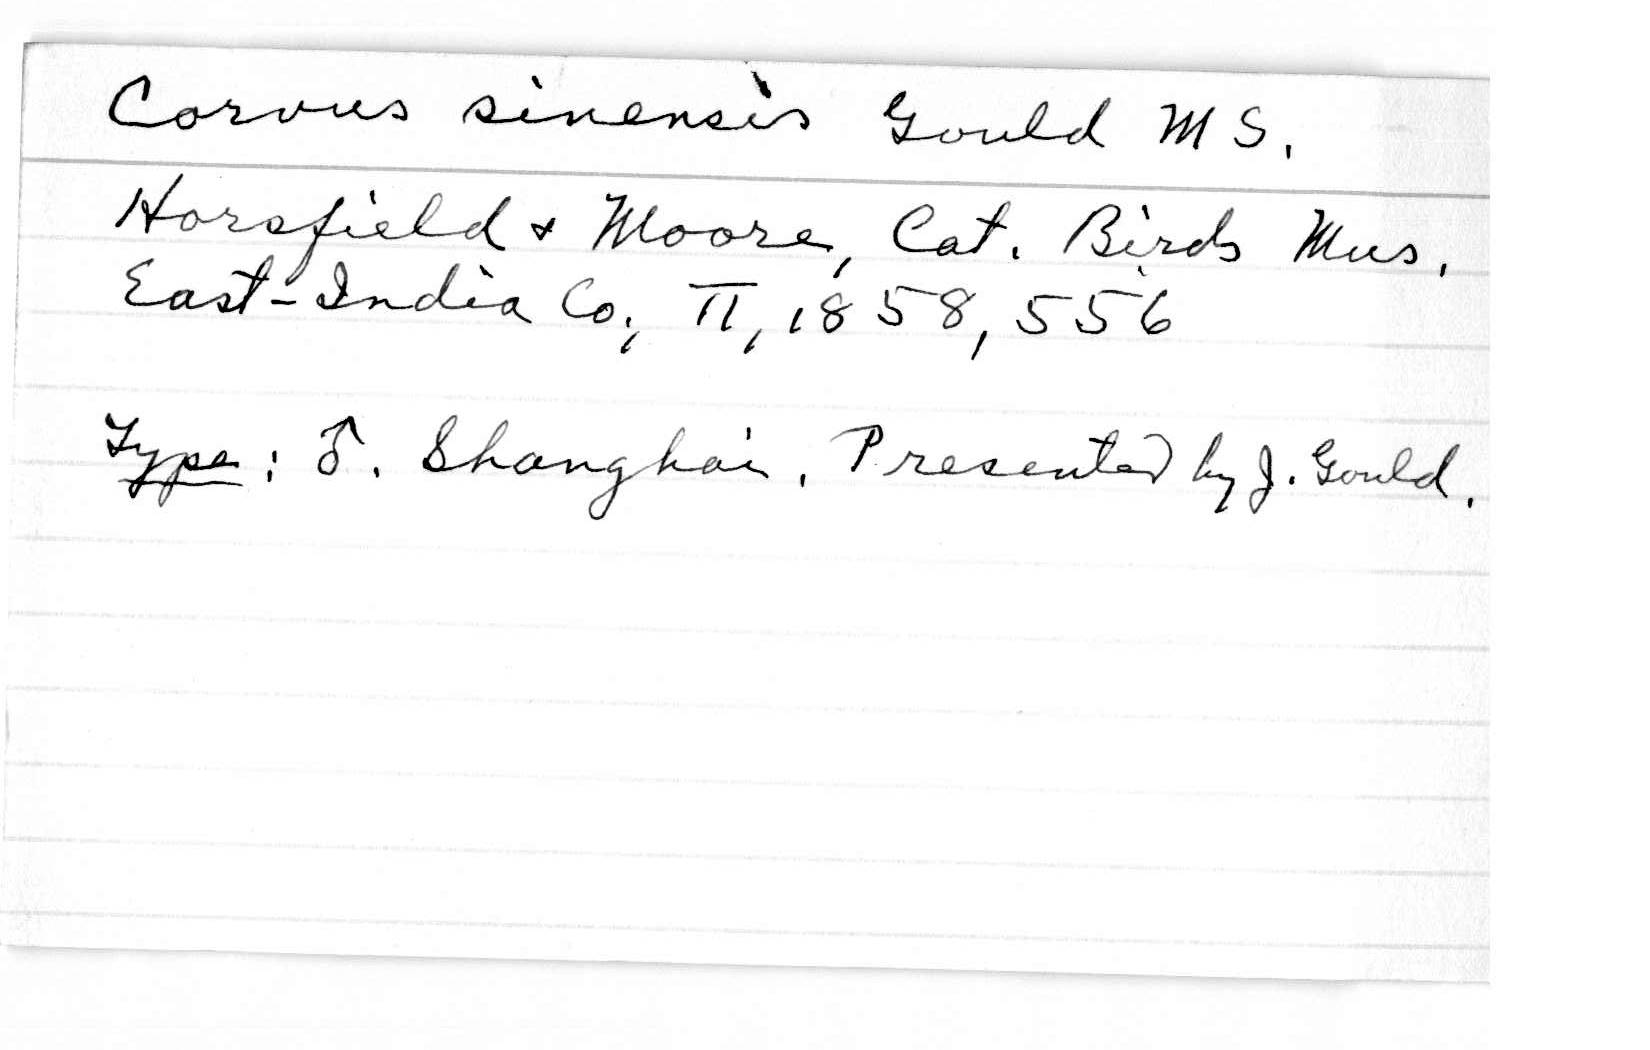 Corvus sinensis Gould MS.
Horsfield & Moore, Cat. Birds Mus.
East-India Co., II, 1858, 556
Type: ♂. Shanghai. Presented by J. Gould.